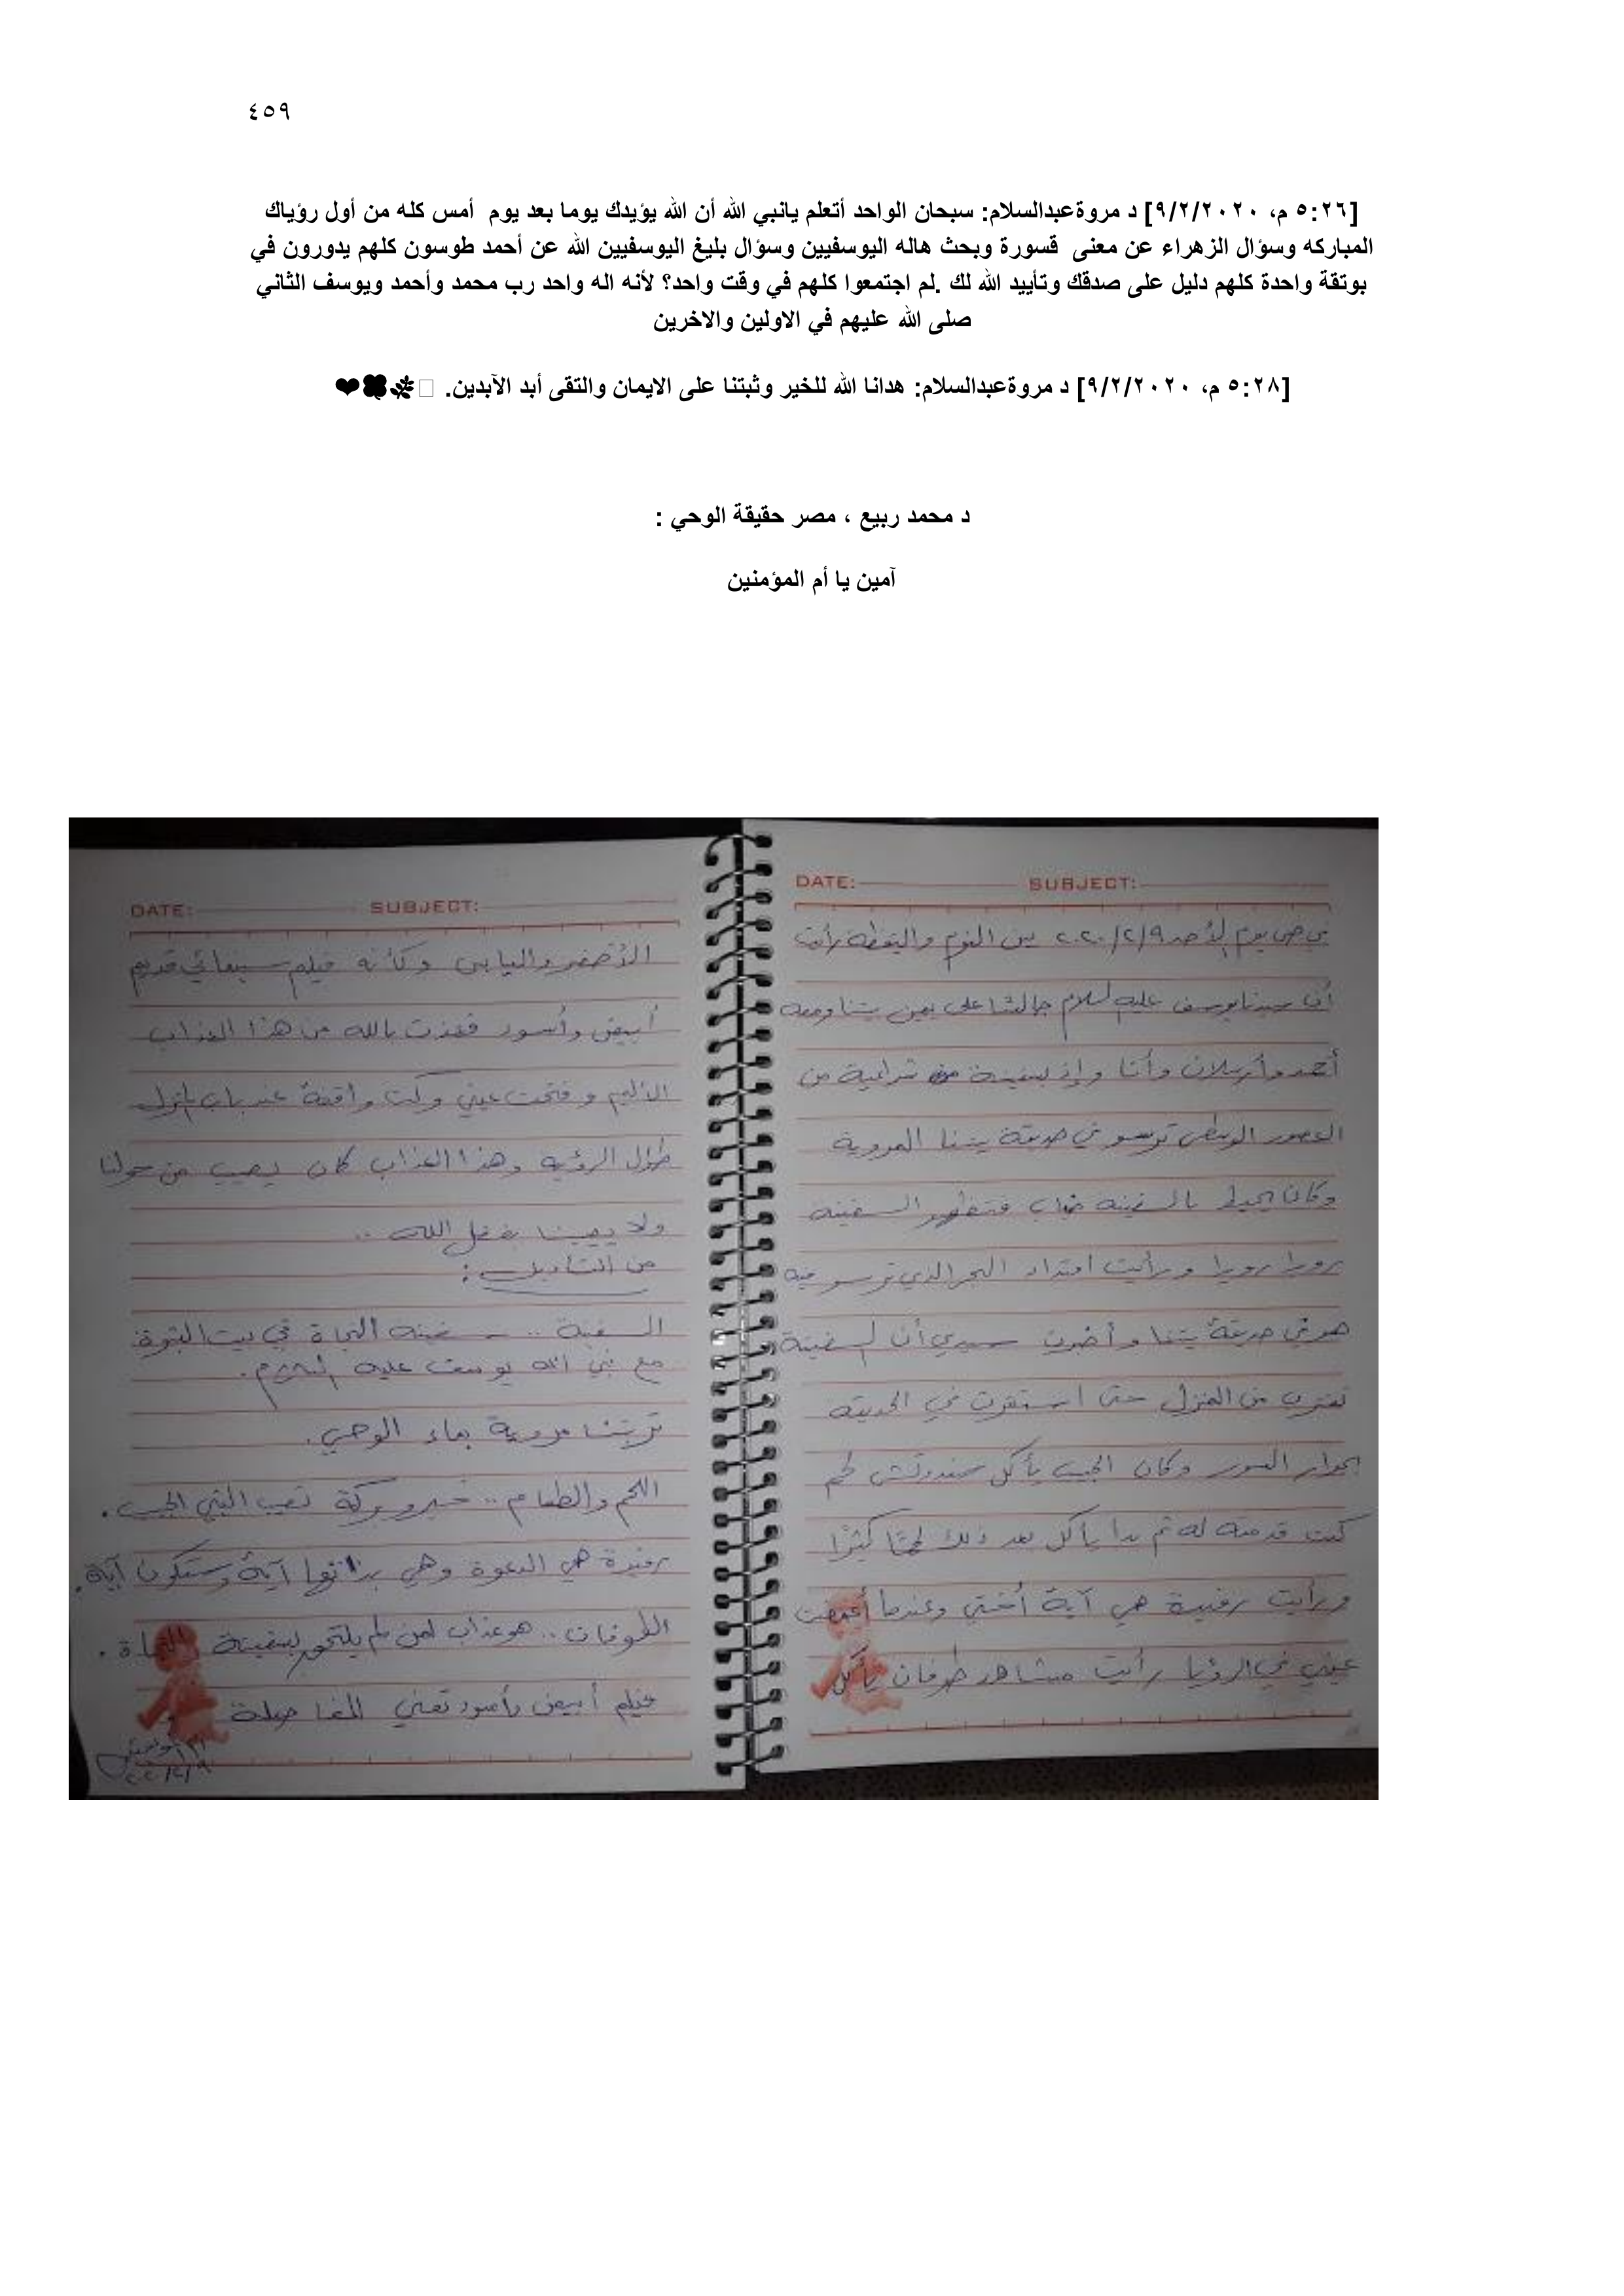 ٤٥٩
[٥:٢٦ م، ٩/٢/٢٠٢٠] د مروةعبدالسلام: سبحان الواحد أتعلم يانبي الله أن الله يؤيدك يوما بعد يوم  أمس كله من أول رؤياك
المباركه وسؤال الزهراء عن معنى  قسورة وبحث هاله اليوسفيين وسؤال بليغ اليوسفيين الله عن أحمد طوسون كلهم يدورون في
بوتقة واحدة كلهم دليل على صدقك وتأييد الله لك .لم اجتمعوا كلهم في وقت واحد؟ لأنه اله واحد رب محمد وأحمد ويوسف الثاني
صلى الله عليهم في الاولين والاخرين
[٥:٢٨ م، ٩/٢/٢٠٢٠] د مروةعبدالسلام: هدانا الله للخير وثبتنا على الايمان والتقى أبد الآبدين. 🌿🍀❤
د محمد ربيع ، مصر حقيقة الوحي :
آمين يا أم المؤمنين
DATE: SUBJECT:
يوم الأحد ٢٠٢٠/٢/٩ بين النوم واليقظة رأيت
أن سيدنا يوسف عليه السلام جالسا على يمين بيتنا ومعه
أحمد وأرسلان وأنا وإذ بسفينة شراعية من
العصور الوسطى ترسو في حديقة بيتنا المروية
وكان يحيط بالسفينة ضباب فتظهر السفينه
رويدا رويدا ورأيت امتداد البحر الذي ترسو فيه
هو في حديقة بيتنا وأخبرت سيدي أن السفينة
تقترب من المنزل حتى استقرت في الحديقة
بجوار السور وكان الحبيب يأكل سندوتش لحم
كنت قدمته له ثم بدأ يأكل بعد ذلك لحمًا كثيرًا
ورأيت رفيدة هي آية أختي وعندما أغمضت
عيني في الرؤيا رأيت مشاهد طوفان يأكل
DATE: SUBJECT:
الأخضر واليابس وكأنه فيلم سينمائي قديم
أبيض وأسود فعذت بالله من هذا العذاب
الأليم وفتحت عيني وكنت واقفة عند باب المنزل
طوال الرؤية وهذا العذاب كان يصيب من حولنا
ولا يصيبنا بفضل الله ..
من التأويل :
السفينة .. سفينه النجاة في بيت النبوة
مع نبي الله يوسف عليه السلام .
تربتنا مروية بماء الوحي .
اللحم والطعام .. خير وبركة تصيب النبي الحبيب .
رفيدة هي الدعوة وهي بذاتها آية وستكون آية .
الطوفان .. هو عذاب لمن لم يلتحق بسفينة النجاة .
فيلم أبيض وأسود تعني المفاصلة